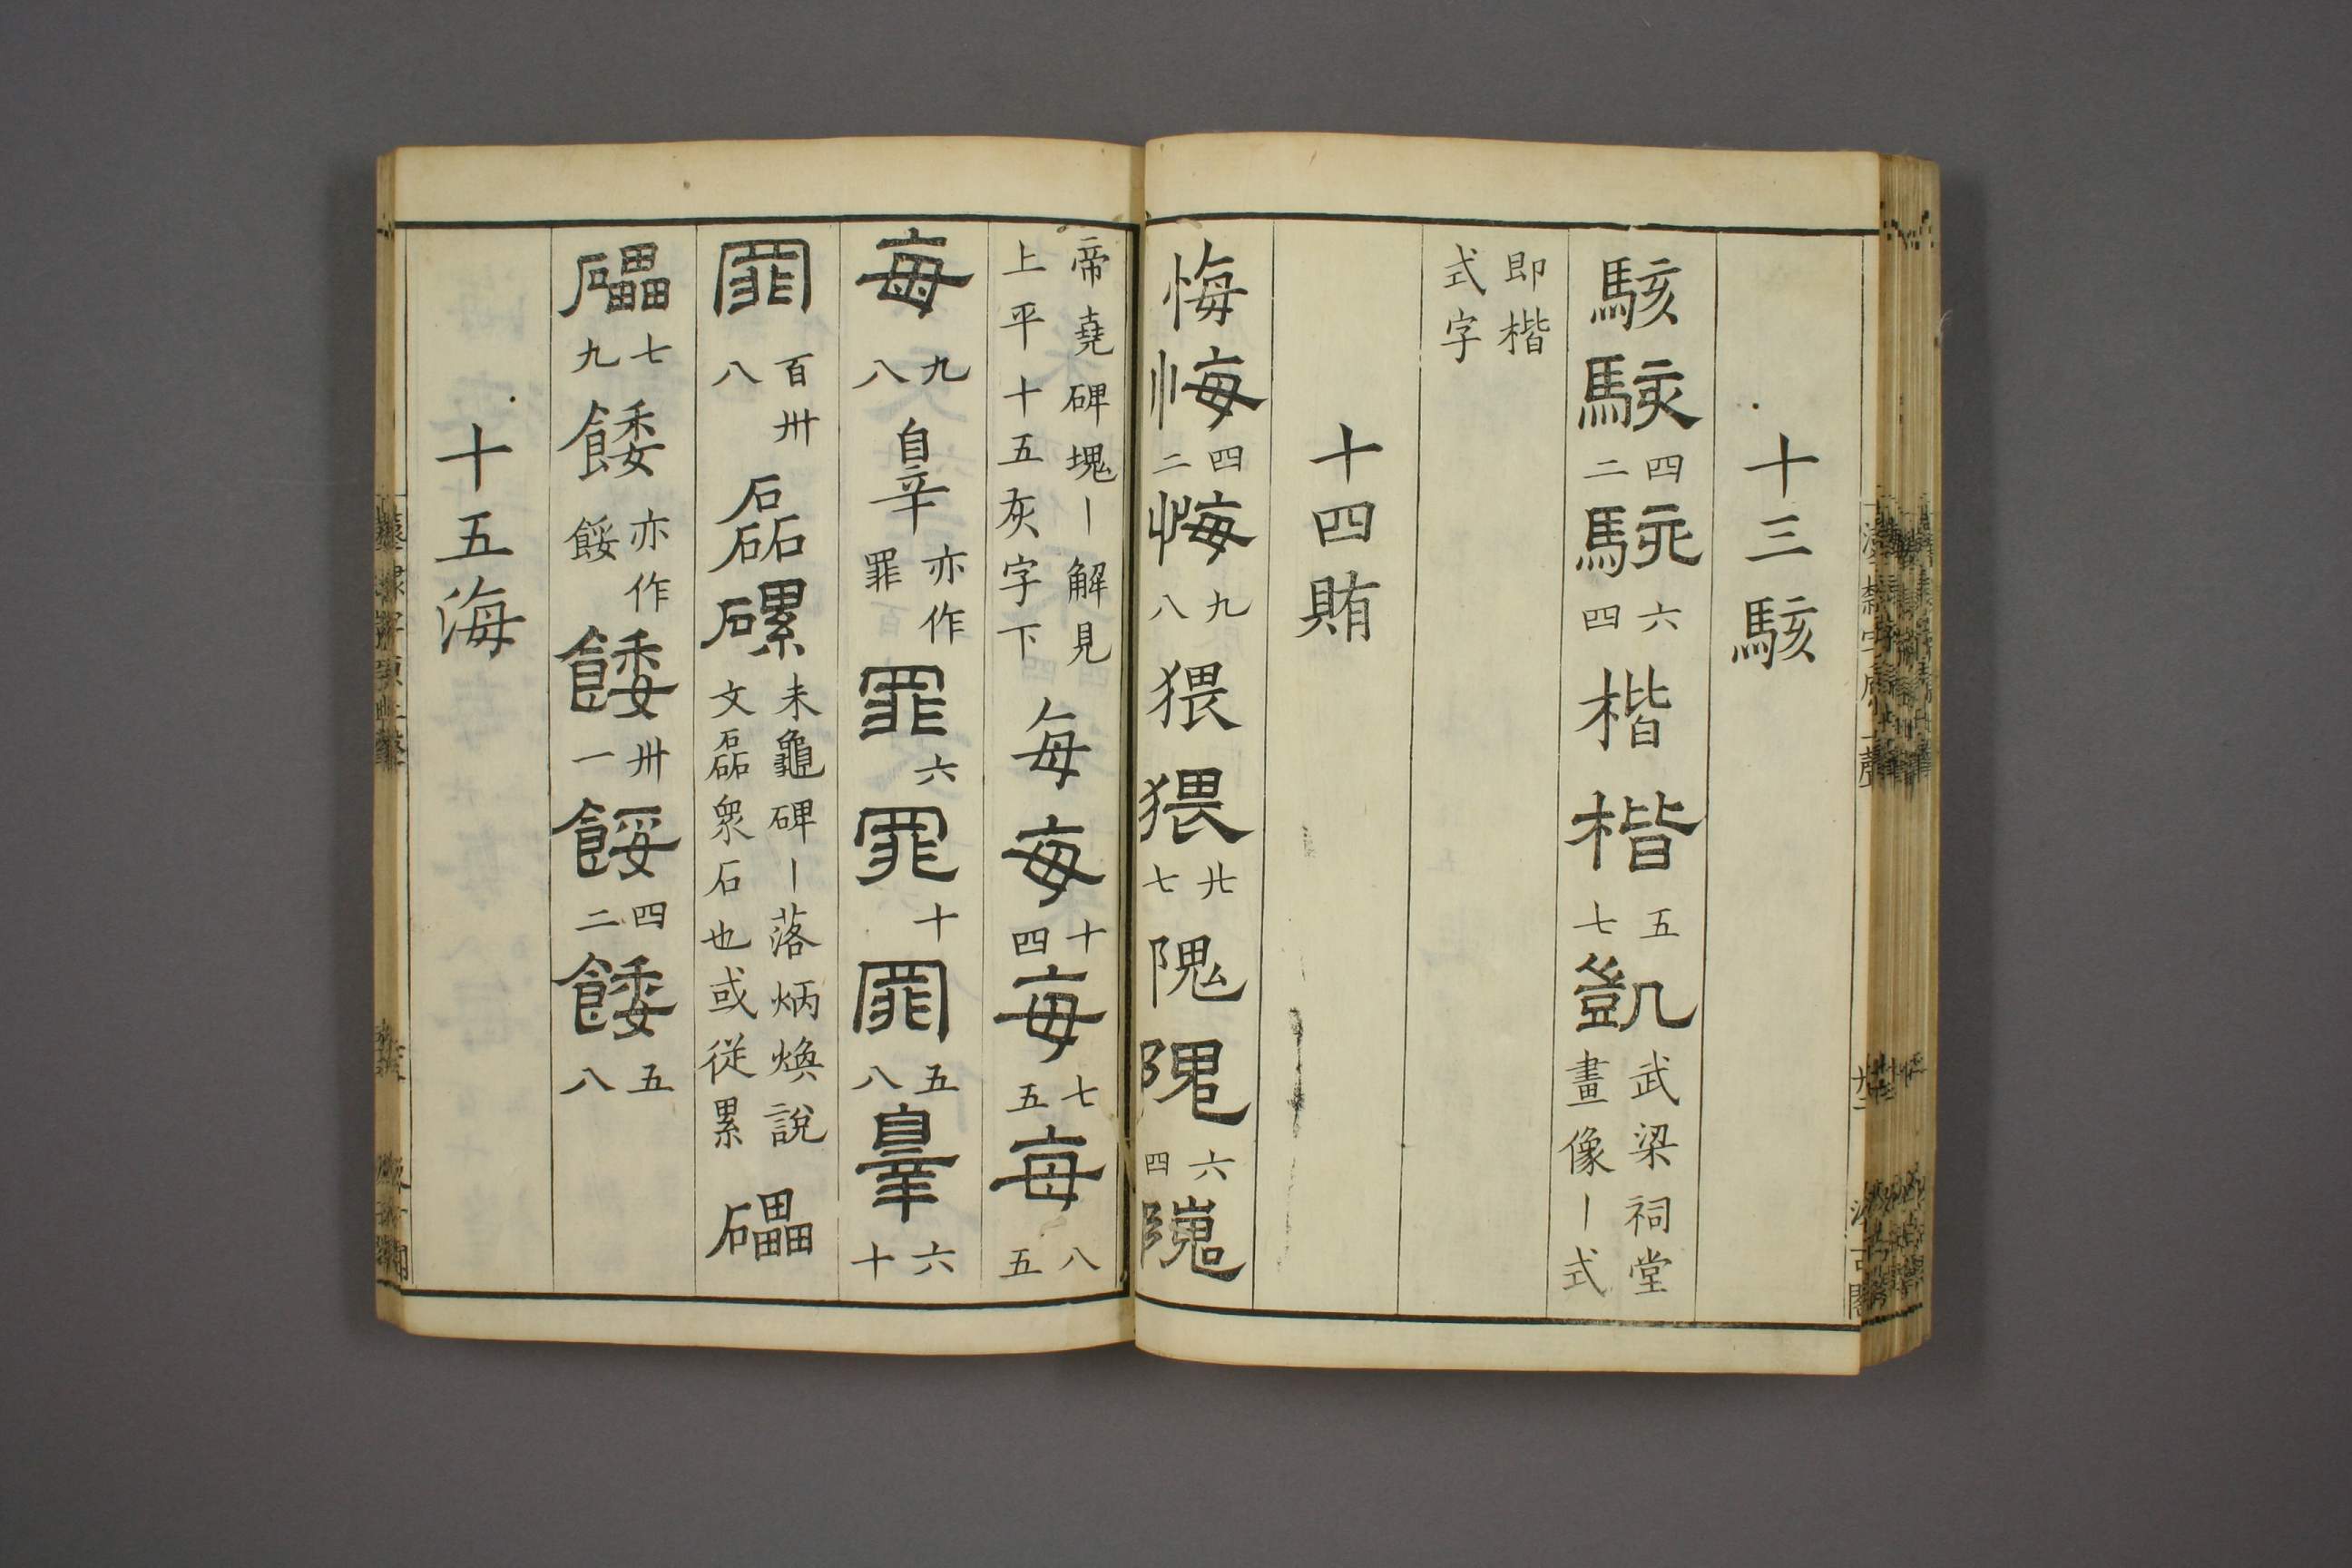 十三駭
駭駭四二駭六四楷楷五七凱武梁祠堂畫像丨式
即楷式字
十四賄
悔悔四二悔九八猥猥廿七隗隗六四隗
帝堯碑塊丨解見上平十五灰字下每每十四每七五每八五
每九八辠亦作罪罪六罪十罪五八辠六十
罪百卅八磊磥未龜碑丨落炳煥說文磊衆石也或從累礧
礧七九餧亦作餒餧卅一餒四二餧五八
十五海